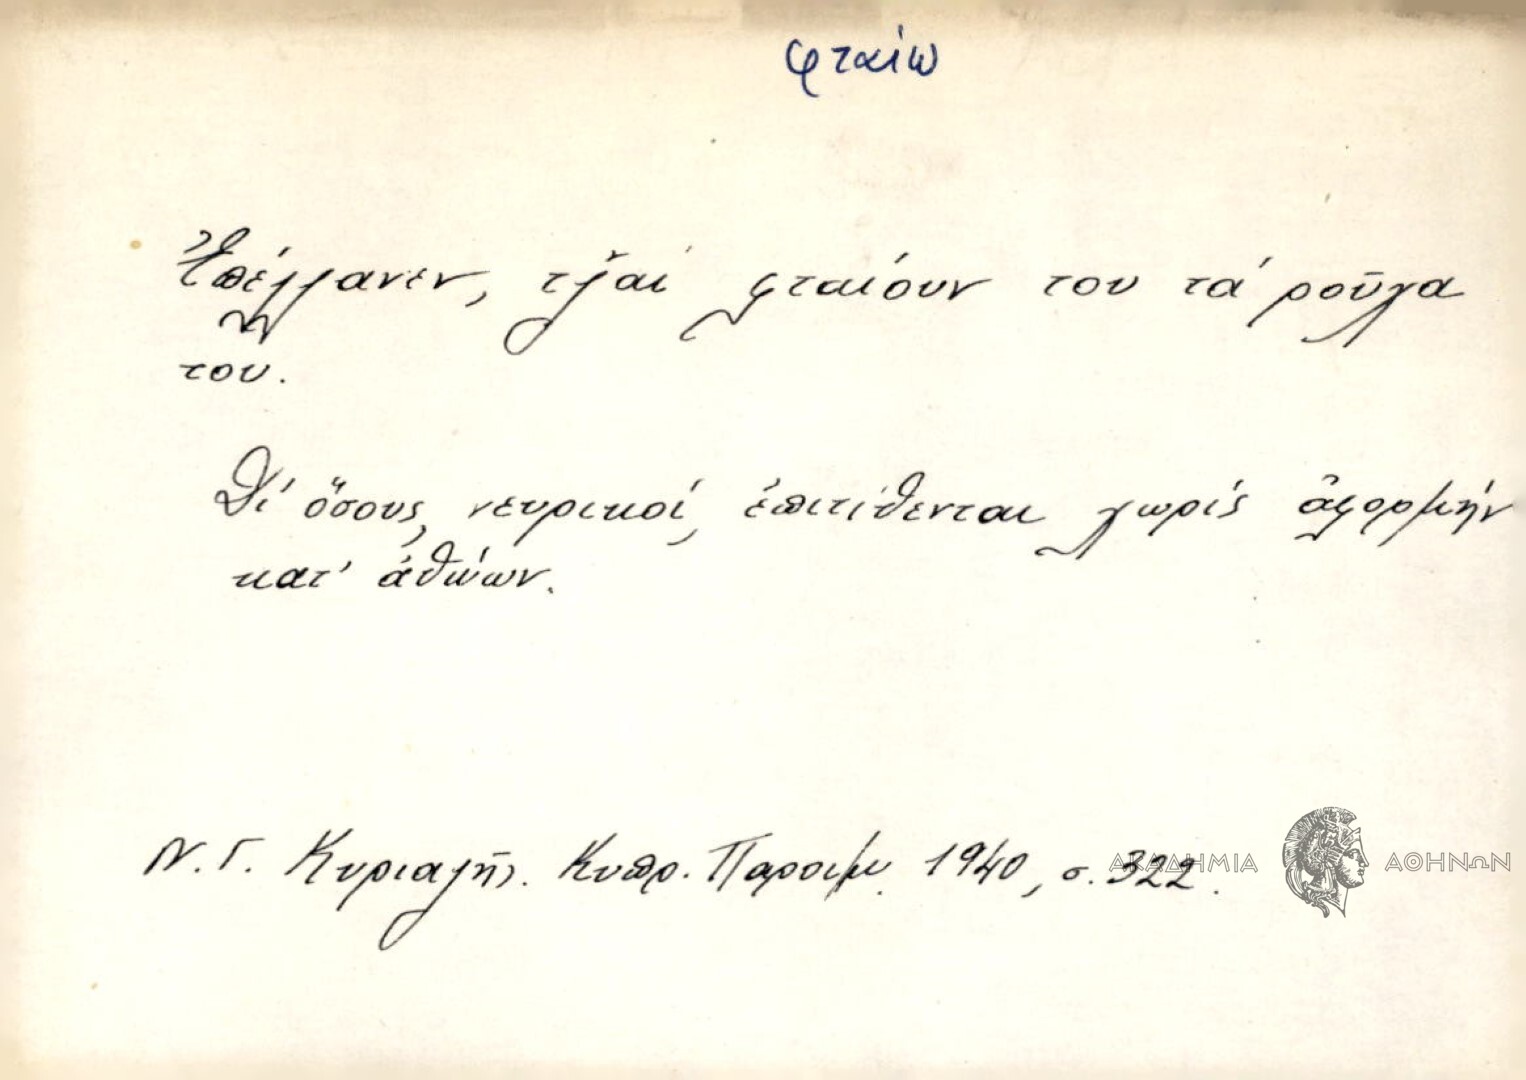 φταίω
Ἐπέλλανεν, τζ̌αί φταίουν του τά ροῦχα
του.
Δι' ὅσους, νευρικοί, ἐπιτίθενται χωρίς ἀφορμήν
κατ' ἀθώων.
Ν. Γ. Κυριαζῆς. Κυπρ. Παροιμ. 1940, σ. 322.
ΑΚΑΔΗΜΙΑ ΑΘΗΝΩΝ